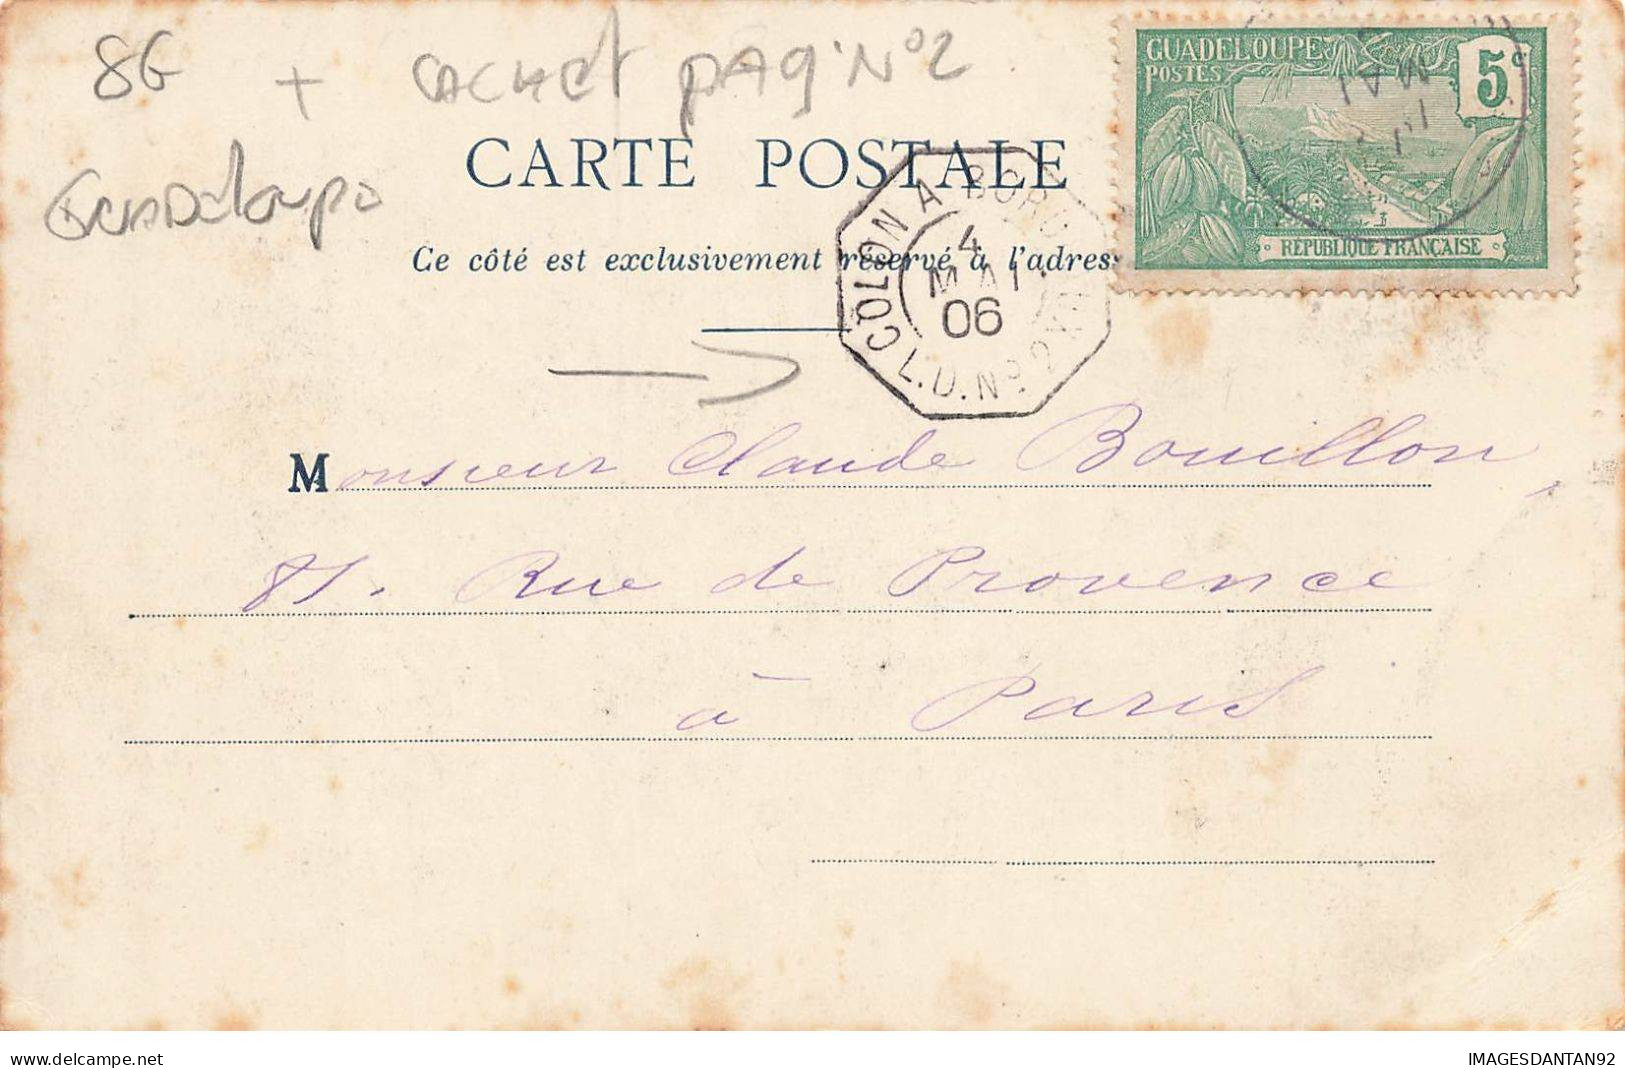 8G + CACHET PAQ. N°2
GUADELOUPE
GUADELOUPE
POSTES
5c
RÉPUBLIQUE FRANÇAISE
MAI
CARTE POSTALE
Ce côté est exclusivement réservé à l'adres
COLON A BORD
4
MAI
06
L.D. N° 2
Monsieur Claude Bouillon,
81. Rue de Provence
à Paris
IMAGESDANTAN92